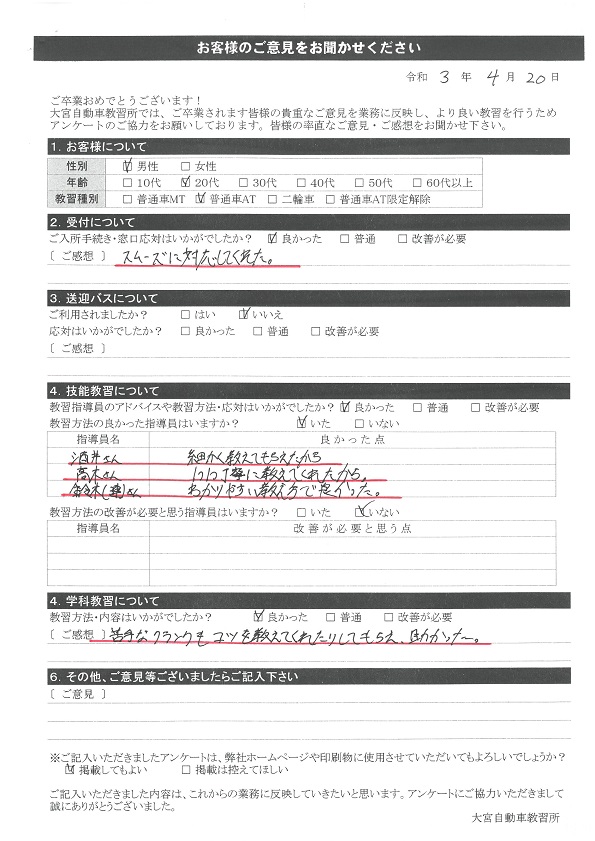 お客様のご意見をお聞かせください
令和 3 年 4 月 20 日
ご卒業おめでとうございます！
大宮自動車教習所では、ご卒業されます皆様の貴重なご意見を業務に反映し、より良い教習を行うため
アンケートのご協力をお願いしております。皆様の率直なご意見・ご感想をお聞かせ下さい。
1. お客様について
性別 ☑男性 □女性
年齢 □10代 ☑20代 □30代 □40代 □50代 □60代以上
教習種別 □普通車MT ☑普通車AT □二輪車 □普通車AT限定解除
2. 受付について
ご入所手続き・窓口応対はいかがでしたか？ ☑良かった □普通 □改善が必要
［ ご感想 ］ スムーズに対応してくれた。
3. 送迎バスについて
ご利用されましたか？ □はい ☑いいえ
応対はいかがでしたか？ □良かった □普通 □改善が必要
［ ご感想 ］
4. 技能教習について
教習指導員のアドバイスや教習方法・応対はいかがでしたか？ ☑良かった □普通 □改善が必要
教習方法の良かった指導員はいますか？ ☑いた □いない
指導員名 良かった点
酒井さん 細かく教えてもらえたから
高木さん 1つ1つ丁寧に教えてくれたから。
鈴木さん わかりやすい教え方で良かった。
教習方法の改善が必要と思う指導員はいますか？ □いた ☑いない
指導員名 改善が必要と思う点
4. 学科教習について
教習方法・内容はいかがでしたか？ ☑良かった □普通 □改善が必要
［ ご感想 ］ 苦手なクランクも コツを教えてくれたりしてもらえ、助かった〜。
6. その他、ご意見等ございましたらご記入下さい
［ ご意見 ］
※ご記入いただきましたアンケートは、弊社ホームページや印刷物に使用させていただいてもよろしいでしょうか？
☑掲載してもよい □掲載は控えてほしい
ご記入いただきました内容は、これからの業務に反映していきたいと思います。アンケートにご協力いただきまして
誠にありがとうございました。
大宮自動車教習所